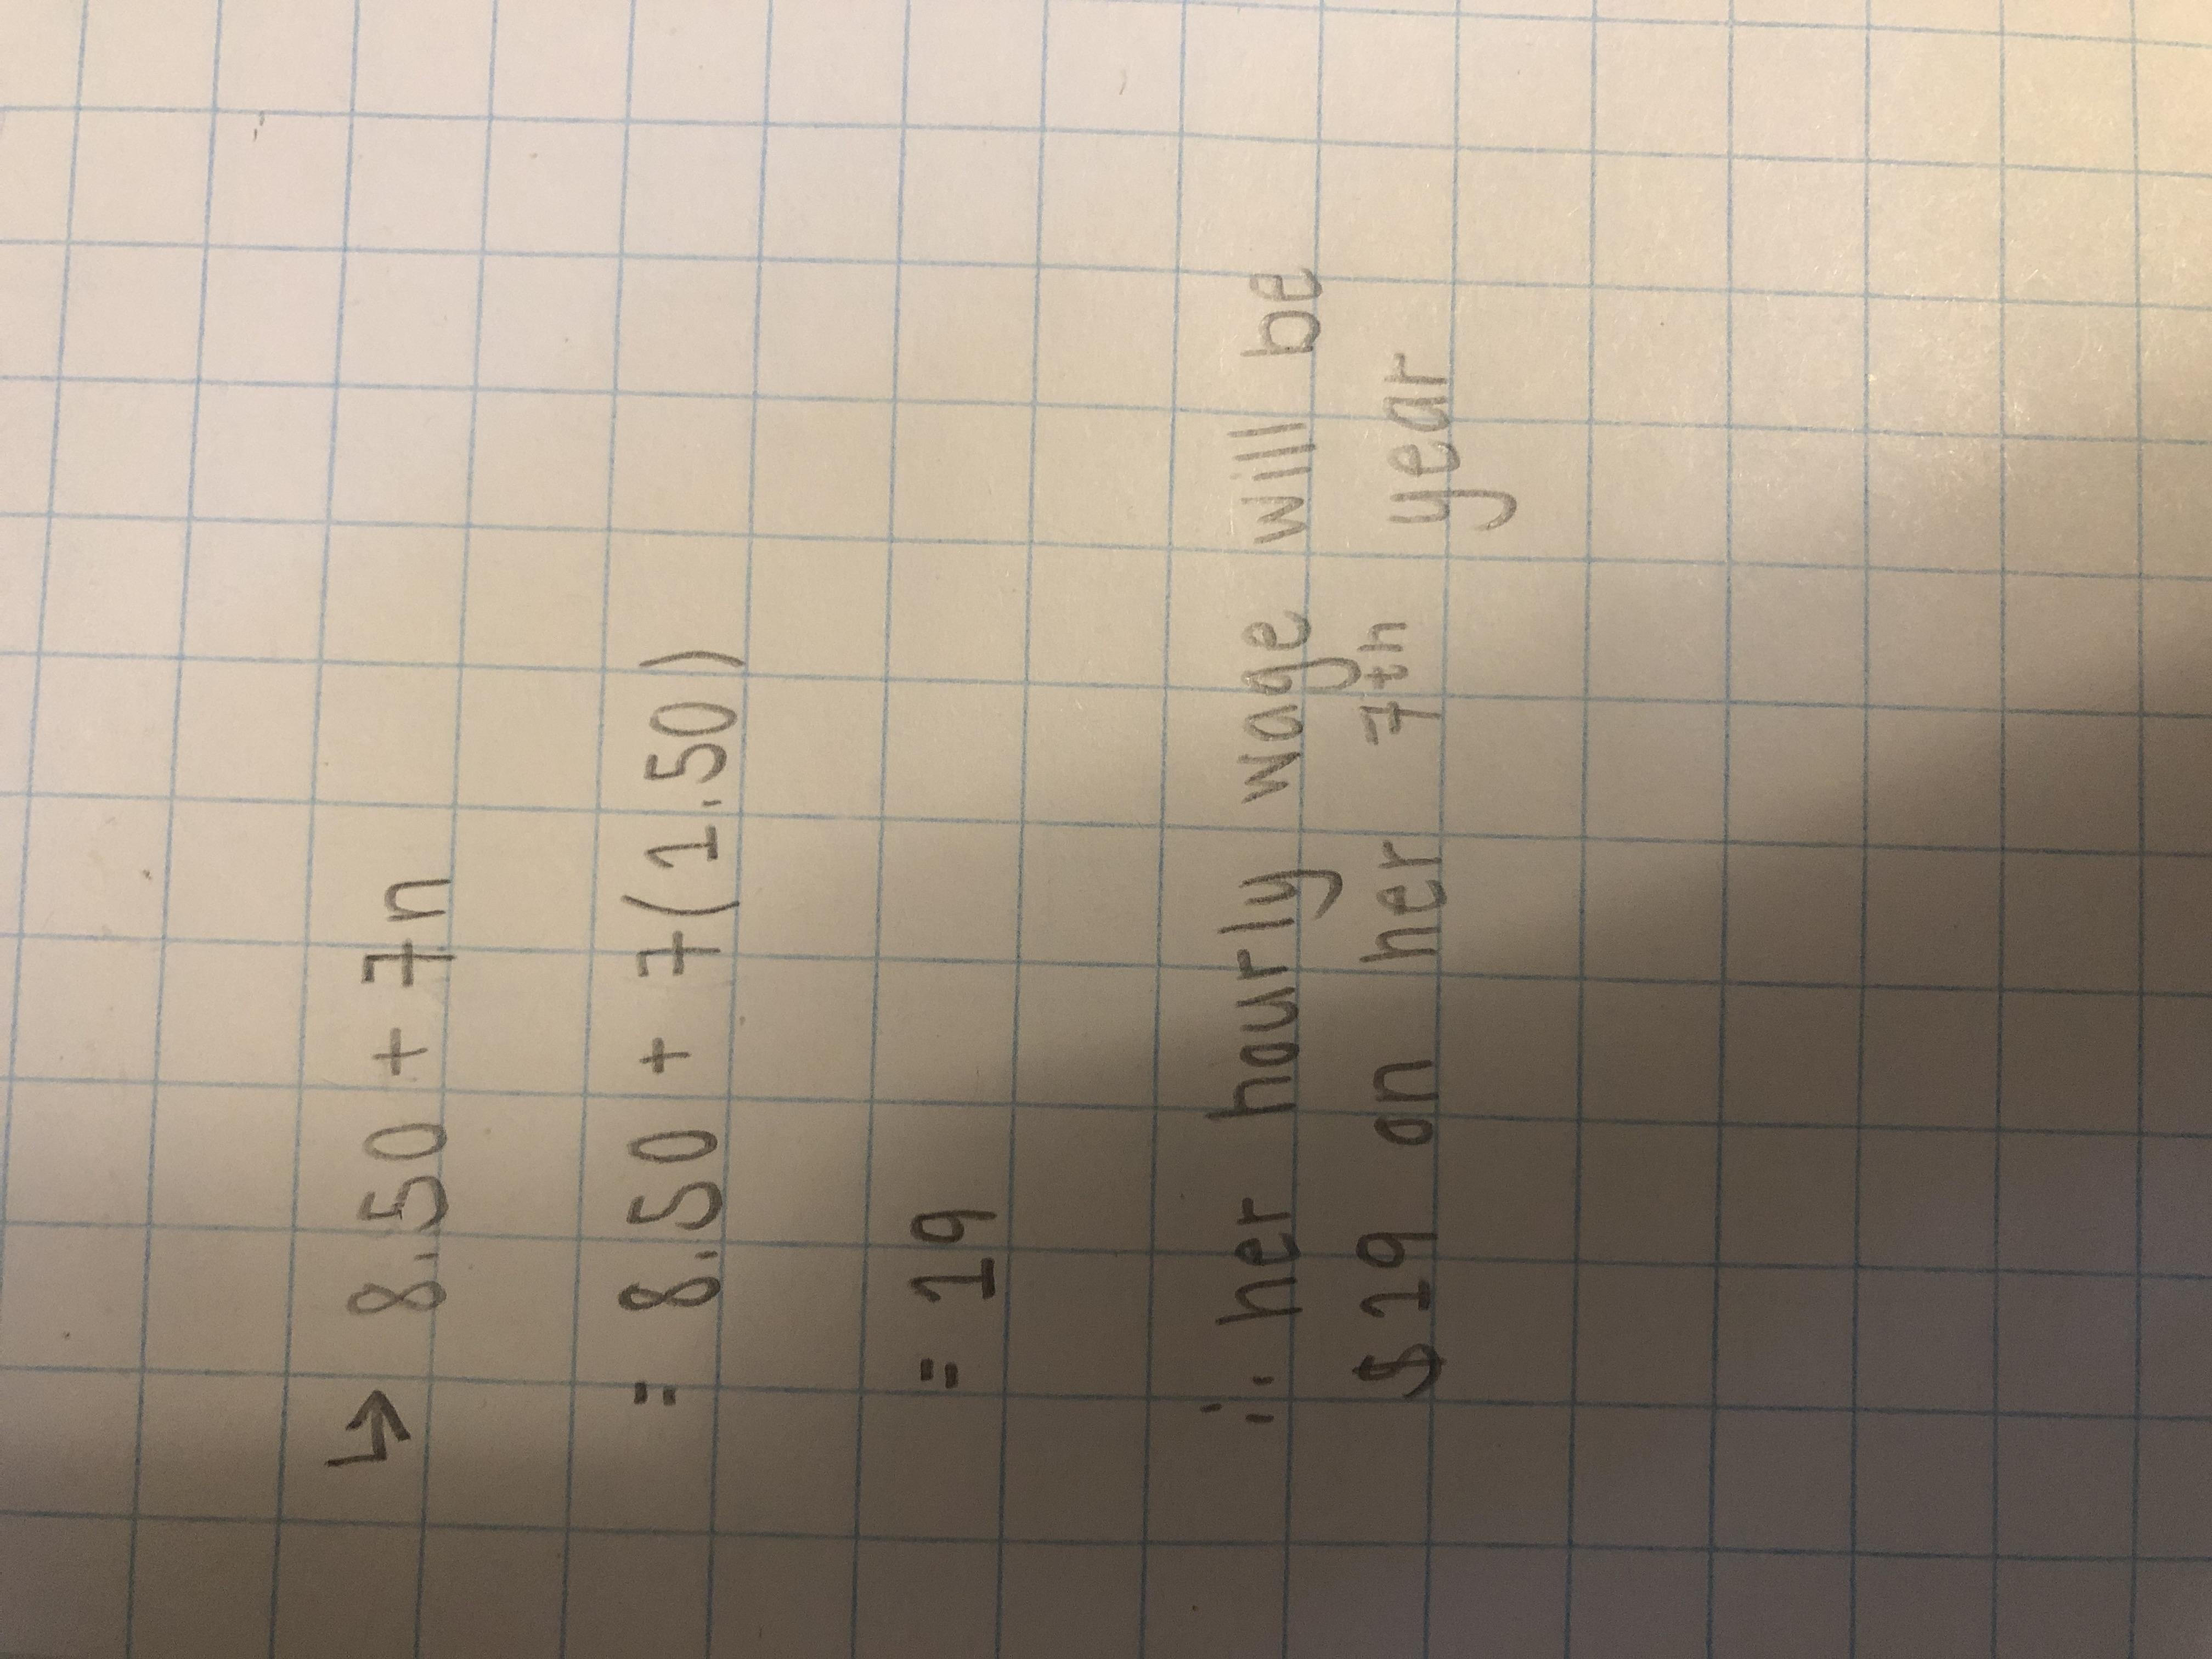 ↳ 8.50 + 7n
= 8.50 + 7(1.50)
= 19
∴ her hourly wage will be
$19 on her 7th year